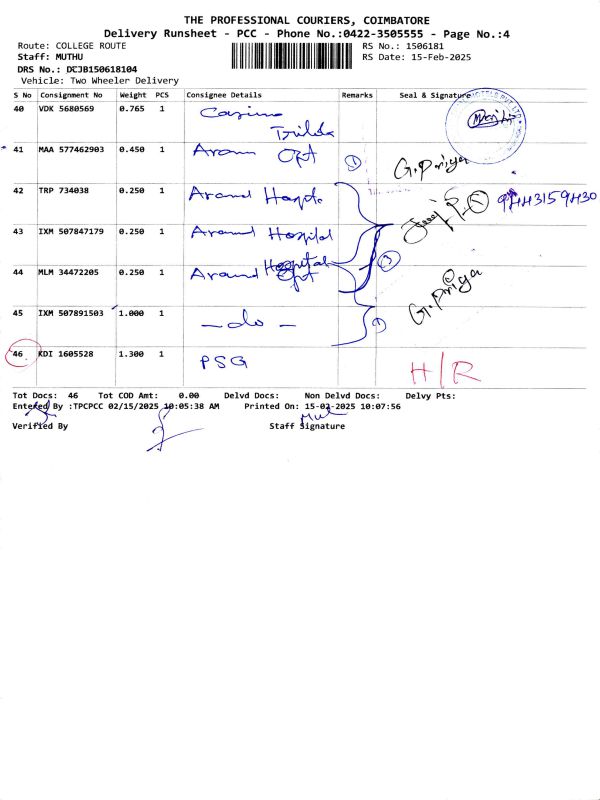 THE PROFESSIONAL COURIERS, COIMBATORE
Delivery Runsheet - PCC - Phone No.:0422-3505555 - Page No.:4
Route: COLLEGE ROUTE RS No.: 1506181
Staff: MUTHU RS Date: 15-Feb-2025
DRS No.: DCJB150618104
Vehicle: Two Wheeler Delivery
S No Consignment No Weight PCS Consignee Details Remarks Seal & Signature
40 VDK 5680569 0.765 1
41 MAA 577462903 0.450 1 Opt 1 G.Priya
42 TRP 734038 0.250 1 9443159430
43 IXM 507847179 0.250 1 Hospital 3
Hospital
44 MLM 34472205 0.250 1 Opt G.Priya
45 IXM 507891503 1.000 1 - do - 1
46 KDI 1605528 1.300 1 PSG H/R
Tot Docs: 46 Tot COD Amt: 0.00 Delvd Docs: Non Delvd Docs: Delvy Pts:
Entered By :TPCPCC 02/15/2025 10:05:38 AM Printed On: 15-02-2025 10:07:56
Verified By Staff Signature